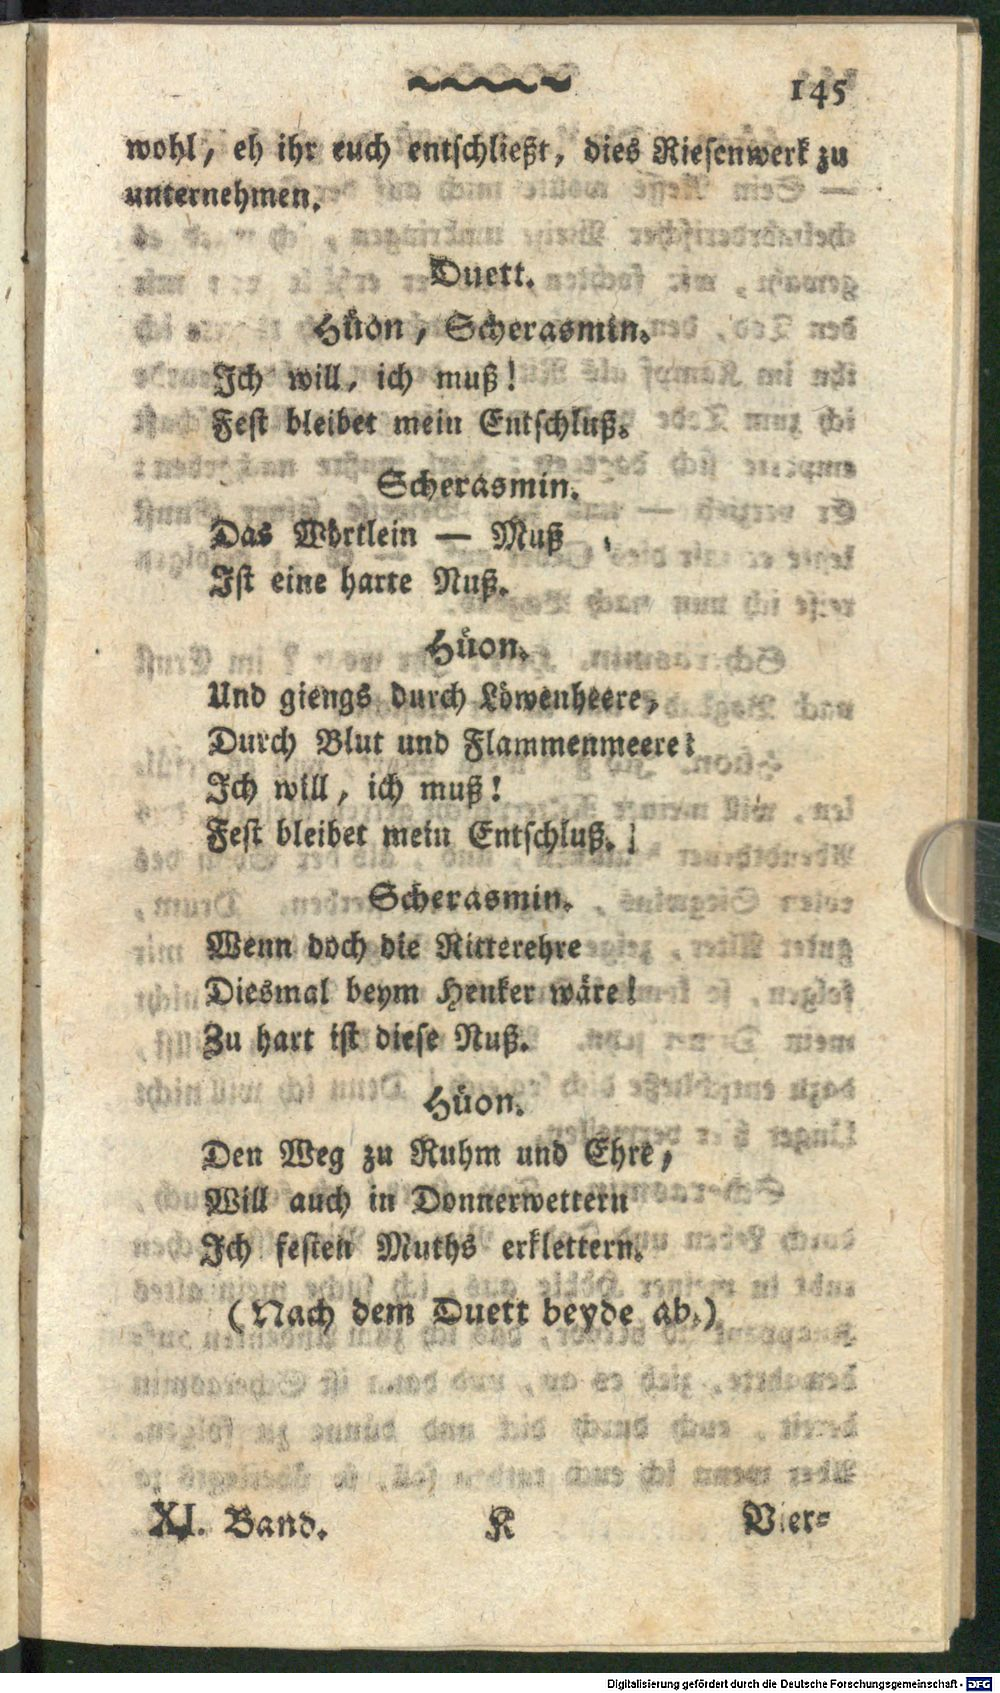 145
wohl, eh ihr euch entschließt, dies Riesenwerk zu
unternehmen.
Duett.
Hüon, Scherasmin.
Ich will, ich muß!
Fest bleibet mein Entschluß.
Scherasmin.
Das Wörtlein — Muß
Ist eine harte Nuß.
Hüon.
Und giengs durch Löwenheere,
Durch Blut und Flammenmeere:
Ich will, ich muß!
Fest bleibet mein Entschluß.
Scherasmin.
Wenn doch die Ritterehre
Diesmal beym Henker wäre!
Zu hart ist diese Nuß.
Hüon.
Den Weg zu Ruhm und Ehre,
Will auch in Donnerwettern
Ich festen Muths erklettern.
(Nach dem Duett beyde ab.)
XI. Band. K Vier-
Digitalisierung gefördert durch die Deutsche Forschungsgemeinschaft - DFG